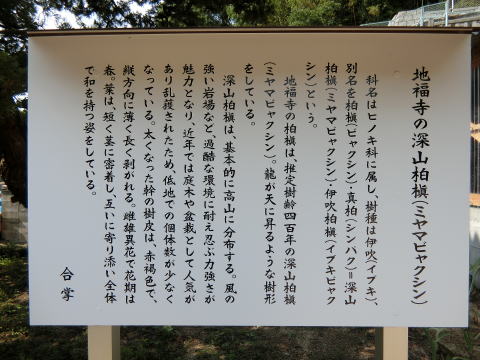 地福寺の深山柏槇(ミヤマビャクシン)
科名はヒノキ科に属し、樹種は伊吹(イブキ)、
別名を柏槇(ビャクシン)・真柏(シンパク)=深山
柏槇(ミヤマビャクシン)・伊吹柏槇(イブキビャク
シン)という。
地福寺の柏槇は、推定樹齢四百年の深山柏槇
(ミヤマビャクシン)。龍が天に昇るような樹形
をしている。
深山柏槇は、基本的に高山に分布する。風の
強い岩場など、過酷な環境に耐え忍ぶ力強さが
魅力となり、近年では庭木や盆栽として人気が
あり乱獲されたため、低地での個体数が少なく
なっている。太くなった幹の樹皮は、赤褐色で、
縦方向に薄く長く剥がれる。雌雄異花で花期は
春。葉は、短く茎に密着し、互いに寄り添い全体
で和を持つ姿をしている。
合掌